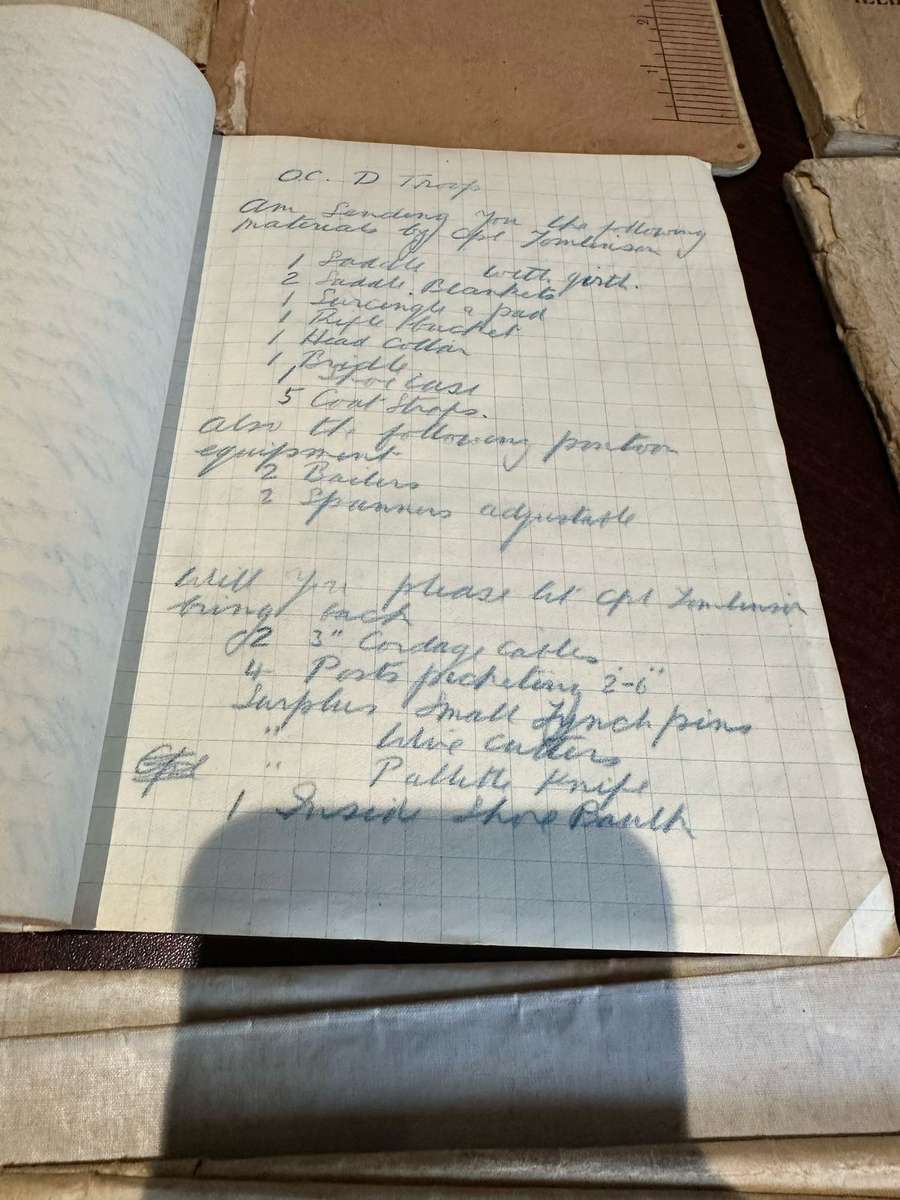 O.C. D Troop
Am sending you the following
materials by Cpl Tomlinson
1 Saddle with girth.
2 Saddle Blankets
1 Surcingle & pad
1 Rifle bucket
1 Head Collar
1 Bridle
1 Shoe Case
5 Coat Straps.
Also the following pontoon
equipment
2 Bailers
2 Spanners adjustable
Will you please let Cpl Tomlinson
bring back
2 3" Cordage Cables
4 Posts picketing 2'-6"
Surplus Small Lynch pins
" Wire Cutters
" Pallette Knife
1 Inside Shoe